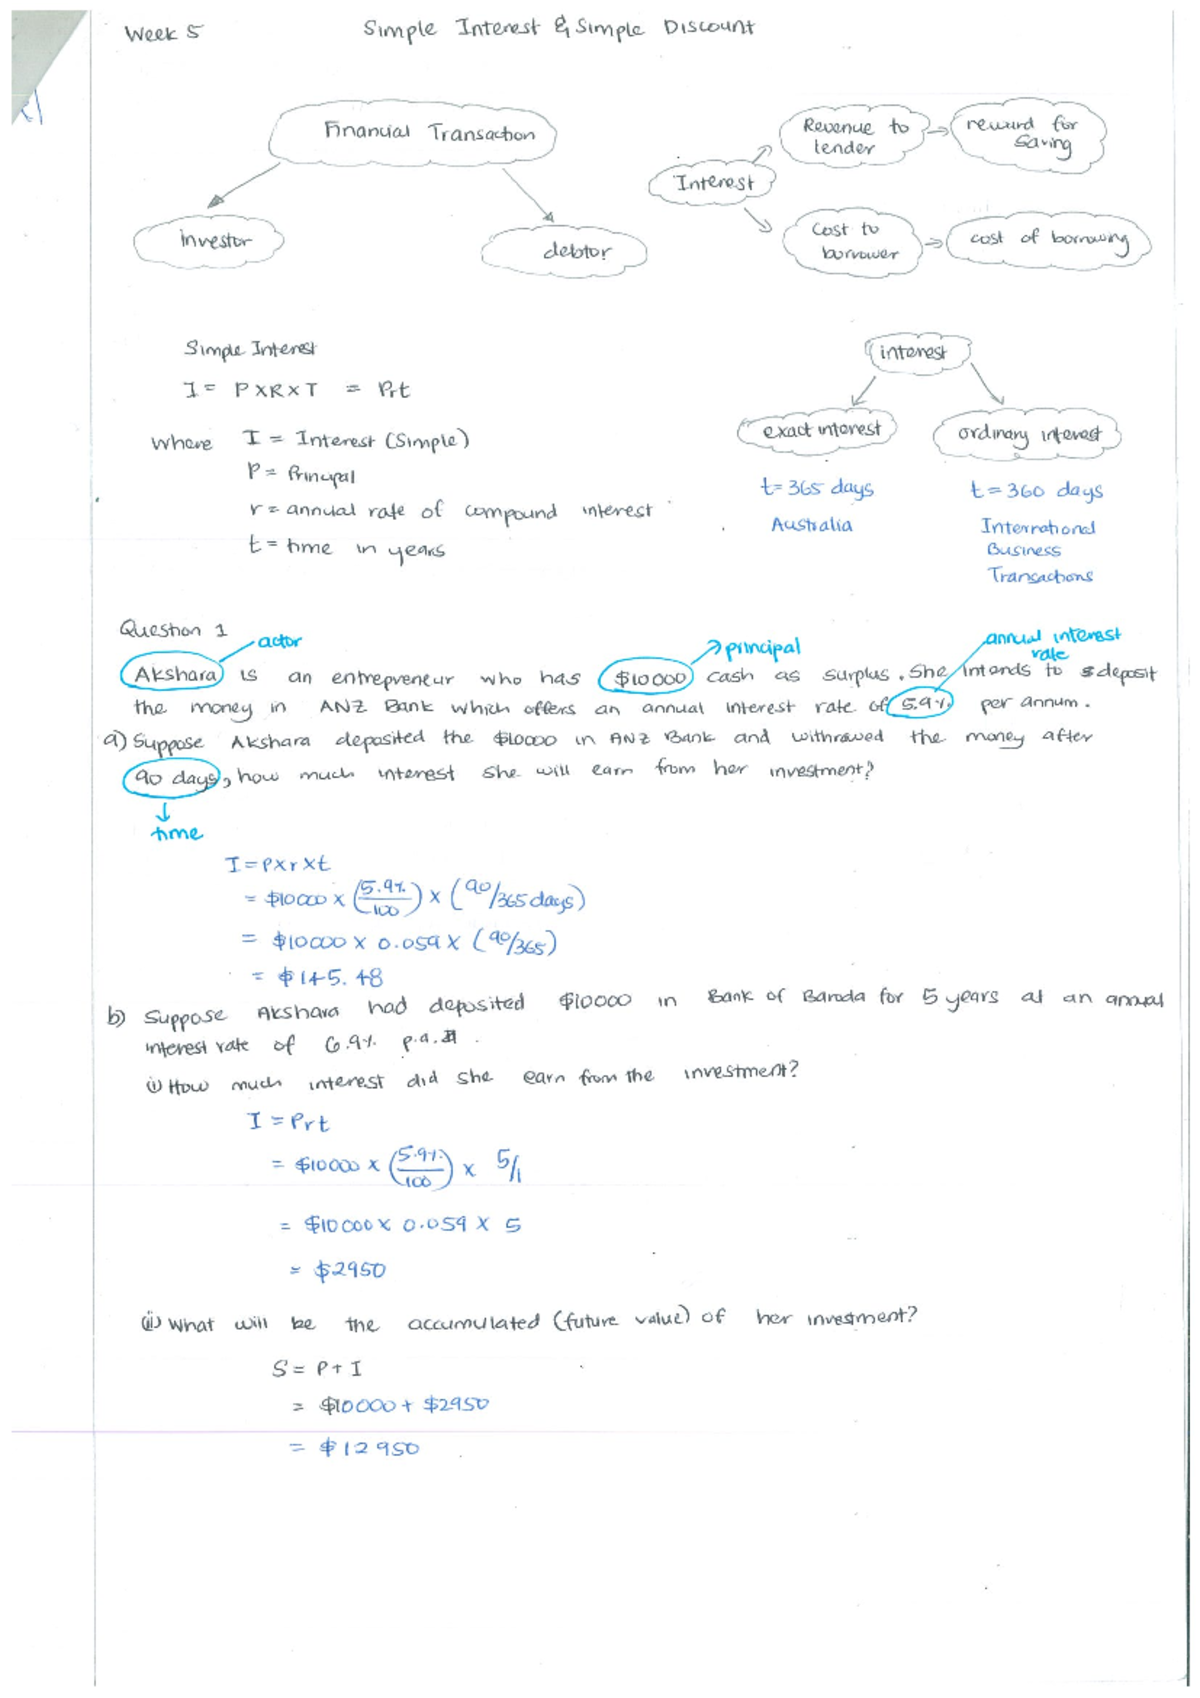 Week 5
Simple Interest & Simple Discount
Financial Transaction
investor
debtor
Interest
Revenue to
lender
reward for
saving
cost to
borrower
cost of borrowing
Simple Interest
I = P x R x T = Prt
where I = Interest (Simple)
P = Principal
r = annual rate of compound interest
t = time in years
interest
exact interest
ordinary interest
t = 365 days
Australia
t = 360 days
International
Business
Transactions
Question 1
actor
principal
annual interest
rate
Akshara is an entrepreneur who has $10000 cash as surplus. She intends to deposit
the money in ANZ Bank which offers an annual interest rate of 5.9% per annum.
a) Suppose Akshara deposited the $10000 in ANZ Bank and withrawed the money after
90 days, how much interest she will earn from her investment?
time
I = P x r x t
= $10000 x (5.9%/100) x (90/365 days)
= $10000 x 0.059 x (90/365)
= $145.48
b) Suppose Akshara had deposited $10000 in Bank of Baroda for 5 years at an annual
interest rate of 6.9% p.a.
(i) How much interest did she earn from the investment?
I = Prt
= $10000 x (5.9%/100) x 5/1
= $10000 x 0.059 x 5
= $2950
(ii) What will be the accumulated (future value) of her investment?
S = P + I
= $10000 + $2950
= $12950